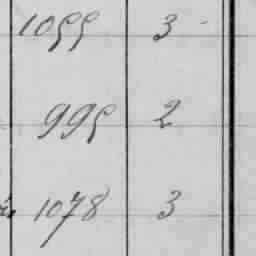 1055 3
995 2
1078 3